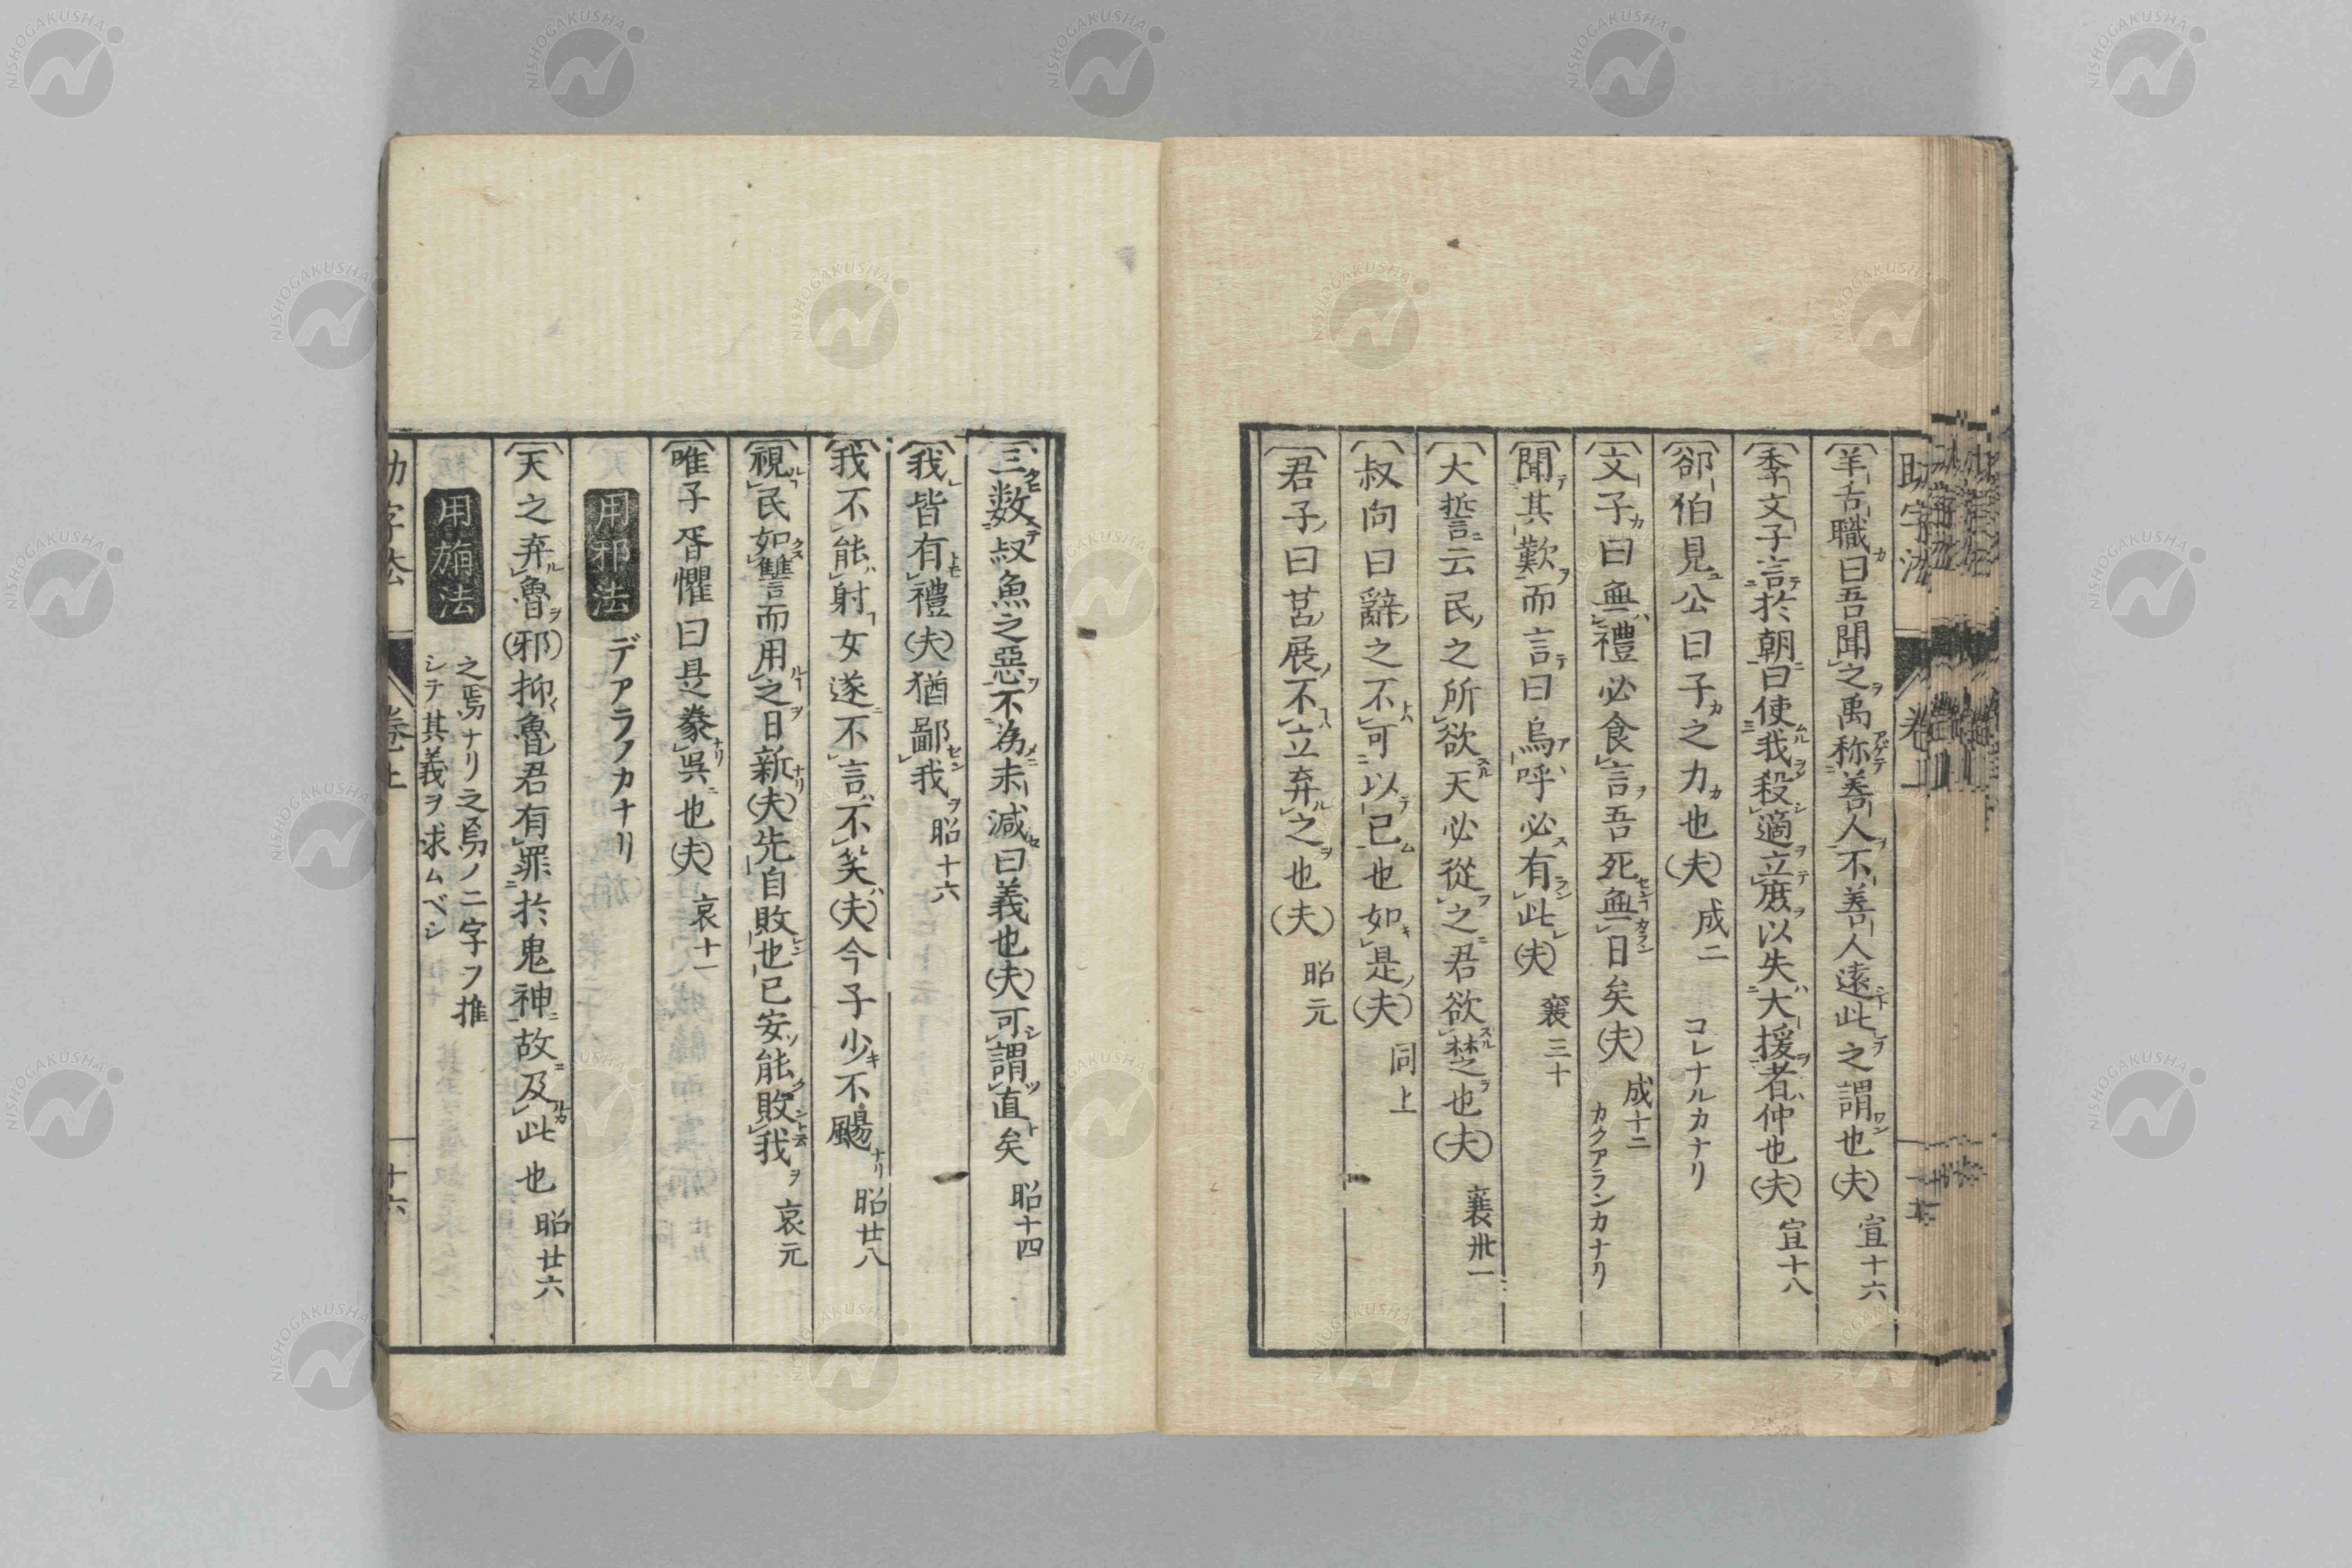 羊舌職曰吾聞之禹称善人不善人遠此之謂也(夫) 宣十六
季文子言於朝曰使我殺適立庶以失大援者仲也(夫) 宣十八
郤伯見公曰子之力也(夫) 成二 コレナルカナリ
文子曰無禮必食言吾死無日矣(夫) 成十二 カクアランカナリ
聞其歎而言曰烏呼必有此(夫) 襄三十
大誓云民之所欲天必從之君欲楚也(夫) 襄卅一
叔向曰辭之不可以已也如是(夫) 同上
君子曰莒展不立弃之也(夫) 昭元
三数叔魚之惡不為末減曰義也(夫)可謂直矣 昭十四
我皆有禮(夫)猶鄙我 昭十六
我不能射女遂不言不笑(夫)今子少不颺 昭廿八
視民如讐而用之日新(夫)先自敗也已安能敗我 哀元
唯子胥懼曰是豢呉也(夫) 哀十一
用邪法 デアラノカナリ
天之弃魯(邪)抑魯君有罪於鬼神故及此也 昭廿六
用旃法 之焉ナリ之焉ノ二字ヲ推
シテ其義ヲ求ムベシ
助字法 卷上 十六
NISHOGAKUSHA